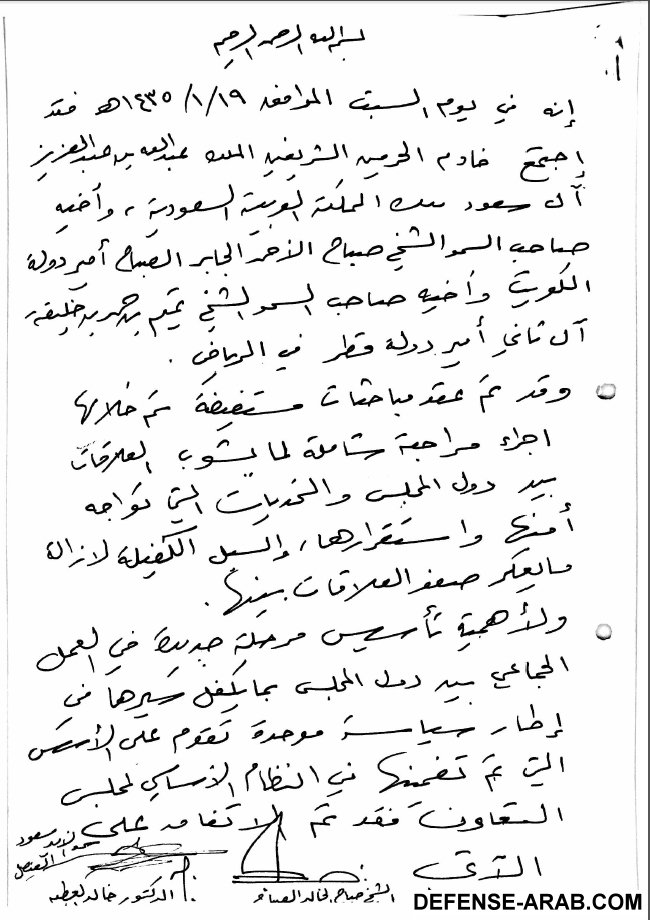 بسم الله الرحمن الرحيم
إنه في يوم السبت الموافق ١٤٣٥/١/١٩هـ فقد
إجتمع خادم الحرمين الشريفين الملك عبدالله بن عبدالعزيز
آل سعود ملك المملكة العربية السعودية ، وأخيه
صاحب السمو الشيخ صباح الأحمد الجابر الصباح أمير دولة
الكويت وأخيه صاحب السمو الشيخ تميم بن حمد بن خليفة
آل ثاني أمير دولة قطر في الرياض .
وقد تم عقد مباحثات مستفيضة تم خلالها
اجراء مراجعة شاملة لما يشوب العلاقات
بين دول المجلس والتحديات التي تواجه
أمنها واستقرارها، والسبل الكفيلة لازالة
مايعكر صفو العلاقات بينها .
ولأهمية تأسيس مرحلة جديدة في العمل
الجماعي بين دول المجلس بما يكفل سيرها في
إطار سياسة موحدة تقوم على الأسس
التي تم تضمنها في النظام الأساسي لمجلس
التعاون فقد تم الاتفاق على
الآتي
سعود الفيصل
الشيخ صباح الخالد الصباح
الدكتور خالد العطية
DEFENSE-ARAB.COM